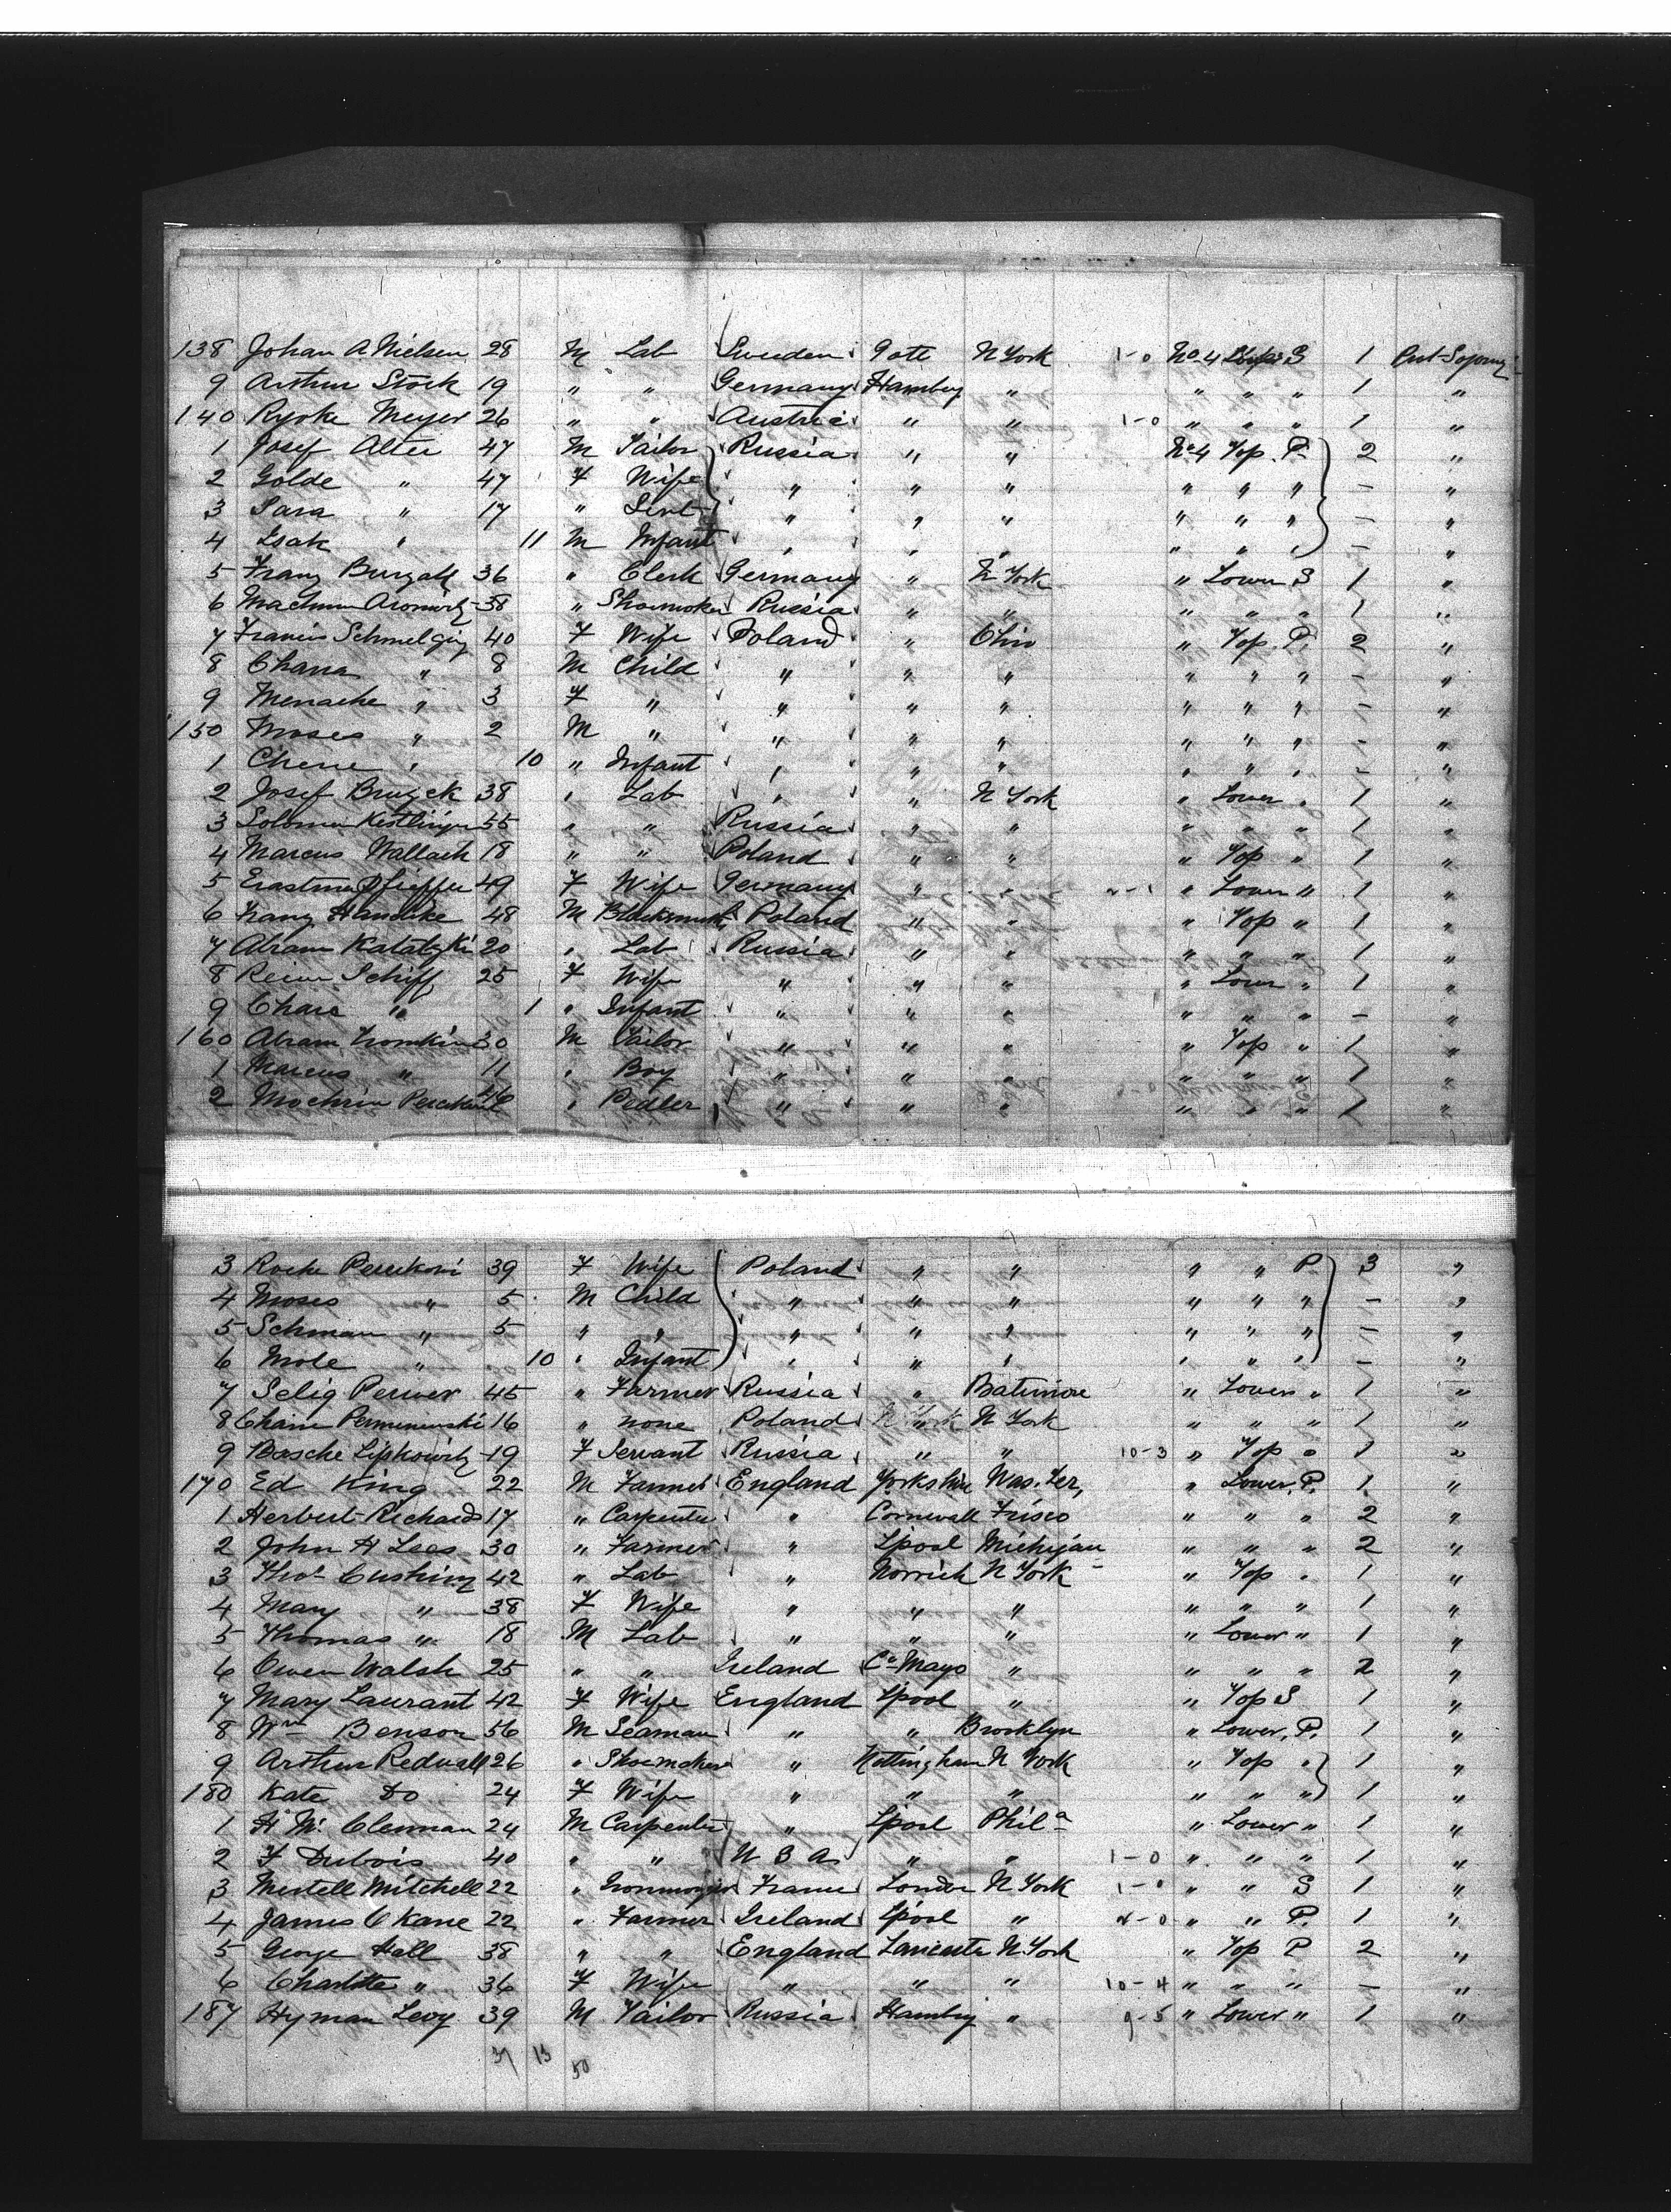 138 Johan A Nielsen 28 M Lab Sweden Gott N York 1-0 No 4 S 1
9 Arthur Stock 19 " " Germany Hamburg " " " " 1 "
140 Ryoke Meyer 26 " " Austria " " 1-0 " " " 1 "
1 Josef Alter 47 M Tailor Russia " " No 4 Top P 2 "
2 Golde " 47 F Wife " " " " " " - "
3 Sara " 17 " Servt " " " " " " - "
4 Isak " 11 M Infant " " " " " " - "
5 Franz 36 " Clerk Germany " N York " Lower S 1 "
6 38 " Shoemaker Russia " " " " " 1 "
7 Francis 40 F Wife Poland " Ohio " Top P. 2 "
8 Chana " 8 M Child " " " " " " - "
9 Menache " 3 F " " " " " " " - "
150 Moses " 2 M " " " " " " " - "
1 Chene " 10 " Infant " " " " " " - "
2 Josef 38 " Lab " " N York " Lower " 1 "
3 Solomon 55 " " Russia " " " " " 1 "
4 Marcus Wallach 18 " " Poland " " " Top " 1 "
5 49 F Wife Germany " " " Lower " 1 "
6 Franz Handke 48 M Blacksmith Poland " " " Top " 1 "
7 Abram Katatzki 20 " Lab Russia " " " " " 1 "
8 Schiff 25 F Wife " " " " Lower " 1 "
9 Chaie " 1 " Infant " " " " " " - "
160 Abram 30 M Tailor " " " " Top " 1 "
1 Marcus " 11 " Boy " " " " " " 1 "
2 46 " Pedler " " " " " " 1 "
3 Roche 39 F Wife Poland " " " " P 3 "
4 Moses " 5 M Child " " " " " " - "
5 Schman " 5 " " " " " " " " - "
6 Mole " 10 " Infant " " " " " " - "
7 Selig Perwer 45 " Farmer Russia " Batimore " Lower " 1 "
8 Chaim 16 " none Poland N York " " " 1 "
9 Basche Lipkowitz 19 F Servant Russia " " 10-3 " Top " 1 "
170 Ed King 22 M Farmer England Yorkshire Was. Ter, " Lower, P. 1 "
1 Herbert Richards 17 " Carpenter " Cornwall Frisco " " " 2 "
2 John H Lees 30 " Farmer " Lpool Michigan " " " 2 "
3 Thos Cushing 42 " Lab " Norwich N York " Top " 1 "
4 Mary " 38 F Wife " " " " " " 1 "
5 Thomas " 18 M Lab " " " " Lower " 1 "
6 Owen Walsh 25 " " Ireland Co Mayo " " " " 2 "
7 Mary Laurant 42 F Wife England Lpool " " Top S 1 "
8 Wm Benson 56 M Seaman " " Brooklyn " Lower, P. 1 "
9 Arthur Redvall 26 " Shoemaker " Nottingham N York " Top " 1 "
180 Kate Do 24 F Wife " " " " " " 1 "
1 H Mc Clennan 24 M Carpenter " Lpool Phila " Lower " 1 "
2 F Dubois 40 " " U S A " " 1-0 " " " 1 "
3 Mestell Mitchell 22 " Ironmonger France London N York 1-0 " " S 1 "
4 James O Kane 22 " Farmer Ireland Lpool " " " P. 1 "
5 George Hall 38 " " England Lancaster N York " Top P 2 "
6 Charlotte " 36 F Wife " " " 10-4 " " " - "
187 Hyman Levy 39 M Tailor Russia Hamburg " 9-5 " Lower " 1 "
37 13 50